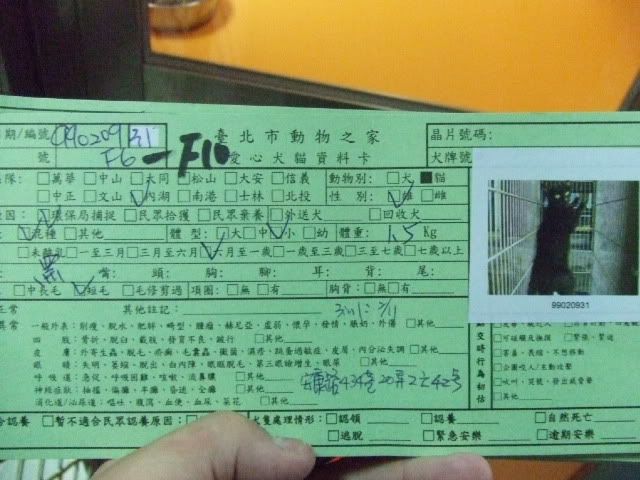 期/編號 090209 31 臺北市動物之家 晶片號碼:
號 F6 — F10 愛心犬貓資料卡 犬牌號
隊: □萬華 □中山 □大同 □松山 □大安 □信義 動物別: □犬 ■貓
□中正 □文山 ☑內湖 □南港 □士林 □北投 性別: ☑雄 □雌
因: ☑環保局捕捉 □民眾拾獲 □民眾棄養 □外送犬 □回收犬
☑混種 □其他 體型: □大 □中 ☑小 □幼 體重: 1.5 Kg
□未離乳 □一至三月 □三月至六月 ☑六月至一歲 □一歲至三歲 □三歲至七歲 □七歲以上
黑 嘴: 頭: 胸: 腳: 耳: 背: 尾:
□中長毛 ☑短毛 □毛修剪過 項圈: □無 □有 胸背: □無 □有
正常 其他註記:
異常 一般外表: 削瘦、脫水、肥胖、畸型、腫瘤、赫尼亞、虛弱、懷孕、發情、脹奶、外傷 □其他
四肢: 骨折、脫臼、截肢、發育不良、跛行 □其他
皮膚: 外寄生蟲、脫毛、疥癬、毛囊蟲、黴菌、濕疹、跳蚤過敏症、皮屑、內分泌失調 □其他
眼睛: 失明、萎縮、脫出、白內障、眼瞼脫毛、第三眼瞼增生、眼屎 □其他
呼吸道: 急促、呼吸困難、咳嗽、流鼻膿 □其他
安康路434巷20弄2之42號
神經症狀: 抽搐、偏癱、半癱、昏迷、全癱 □其他
消化道/泌尿道: 嘔吐、腹瀉、血便、血尿、尿失 □其他
99020931
交時行為初估
□其他
合認養 □暫不適合民眾認養原因: 犬隻處理情形: □認領 □認養 □自然死亡
□逃脫 □緊急安樂 □逾期安樂